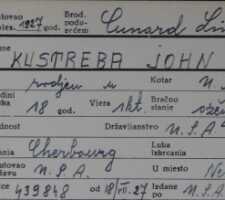 tovao 1927 god. Brod. poduzećem Cunard Lin
me KUSTREBA JOHN
rodjen u Kotar N.
dini 18 god. Vjera rkt. Bračno stanjeože
dnost Državljanstvo N.S.A.
nia Cherbourg Luka iskrcanja
utovao N.S.A. U mjesto Ne
žavu
ce 439848 od 18/VII.27 Izdane po N.S.A